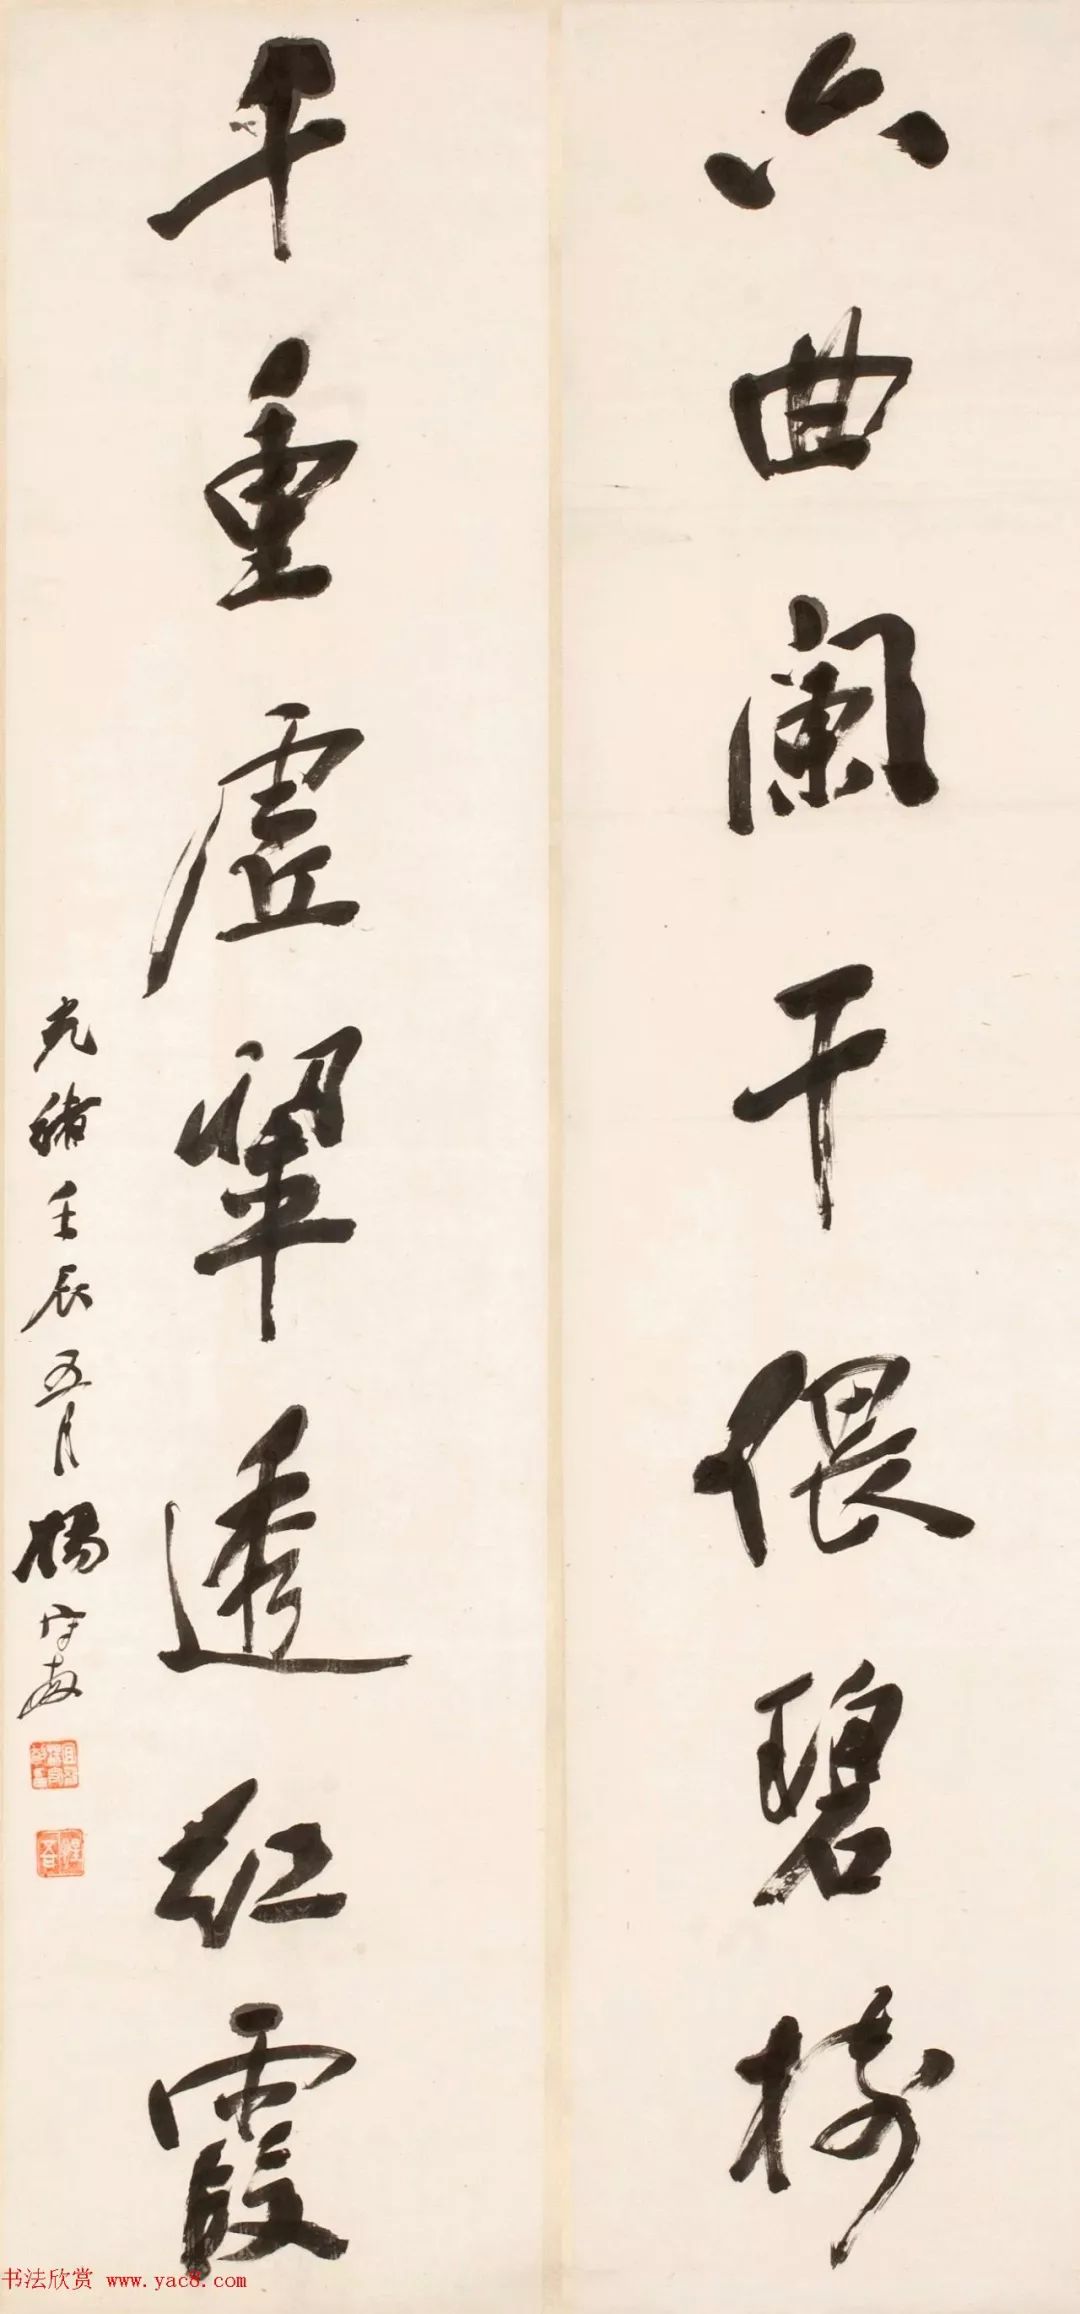 六曲闌干偎碧樹
千重虛翠透紅霞
光緒壬辰五月楊守敬
书法欣赏 www.yac8.com